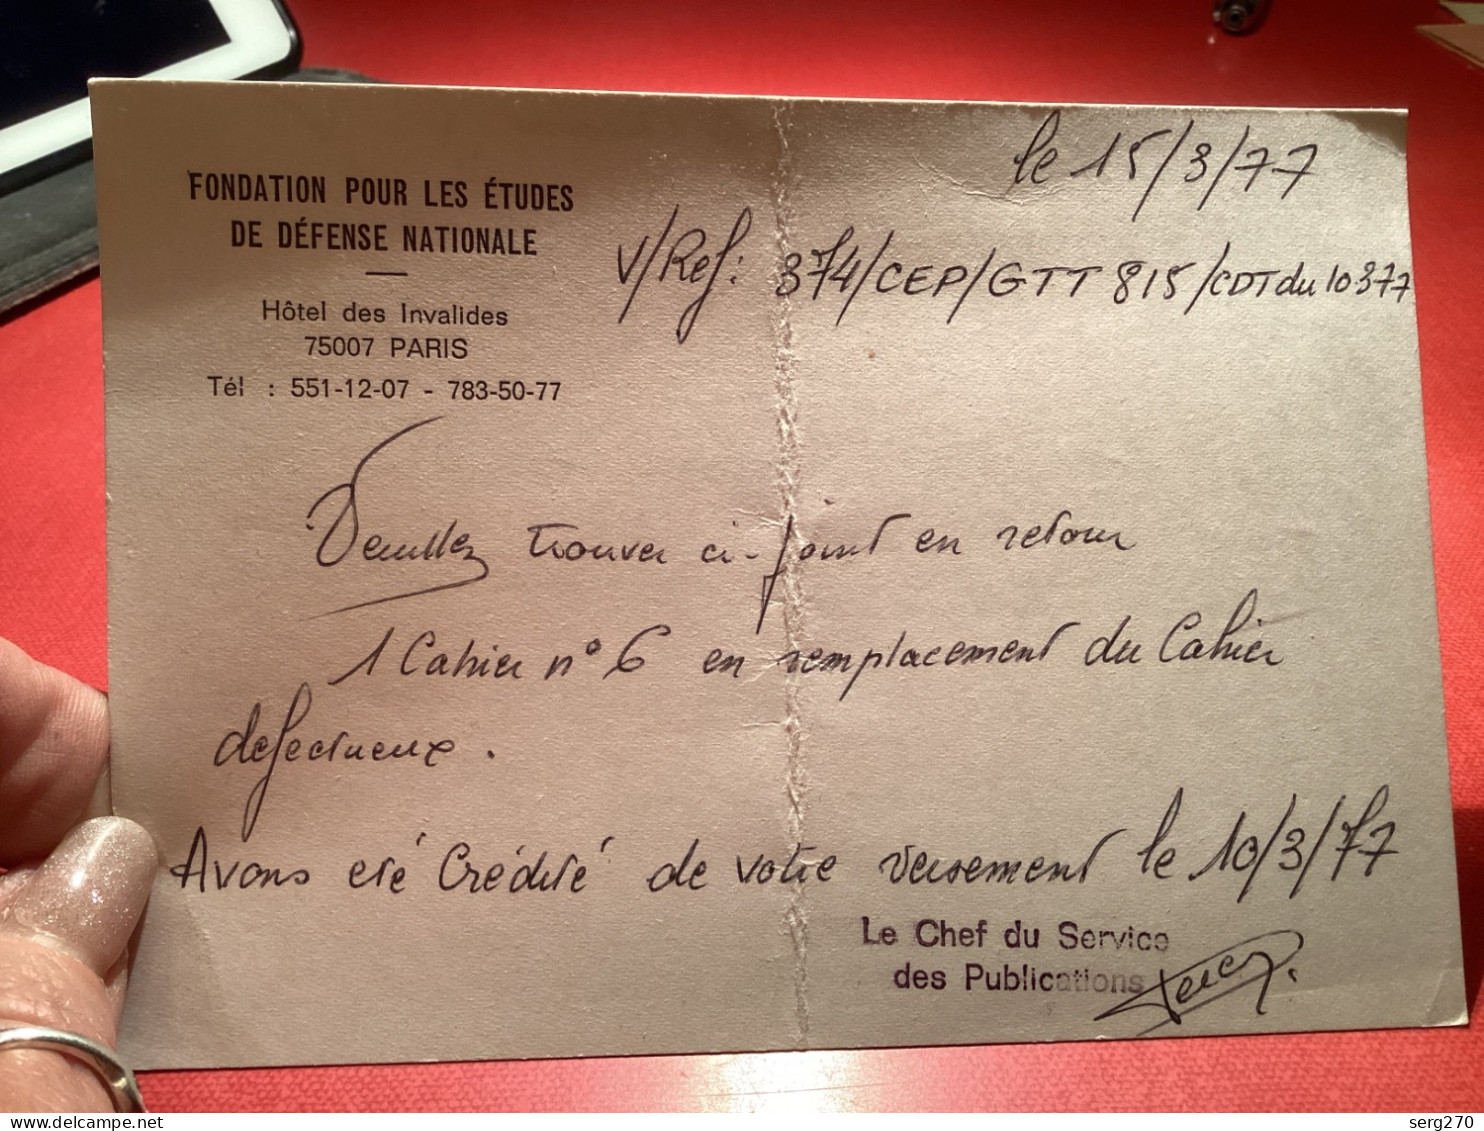 FONDATION POUR LES ÉTUDES
DE DÉFENSE NATIONALE
Hôtel des Invalides
75007 PARIS
Tél : 551-12-07 - 783-50-77
le 15/3/77
V/Ref: 374/CEP/GTT 815/CDT du 10 3 77
Veuillez trouver ci-joint en retour
1 Cahier n° 6 en remplacement du Cahier
defectueux.
Avons été Crédité de votre versement le 10/3/77
Le Chef du Service
des Publications
serg270